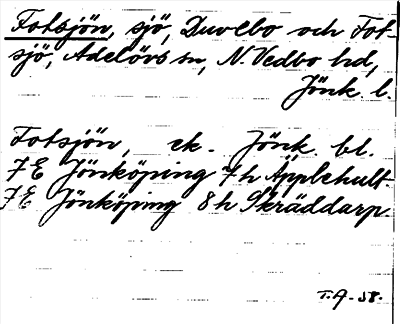 Fotsjön, sjö, Duvebo och Fot-
sjö, Adelövs sn, N. Vedbo hd,
Jönk. l.
Fotsjön, ek. Jönk. bl.
7E Jönköping 7h Äpplehult.
7E Jönköping 8h Skräddarp.
T.A -58.